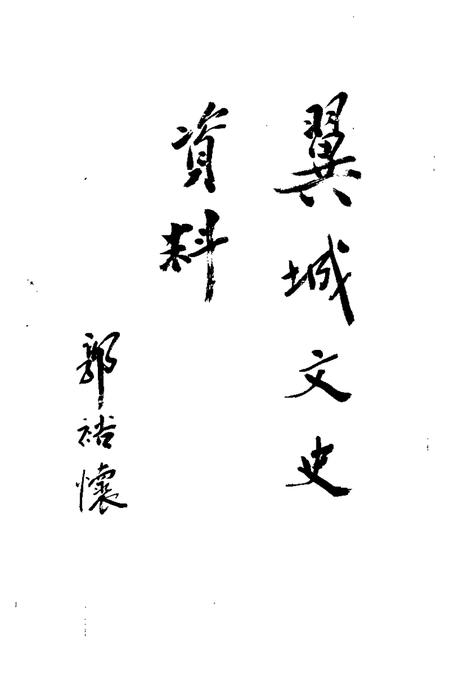 翼城文史
資料
郭裕懷